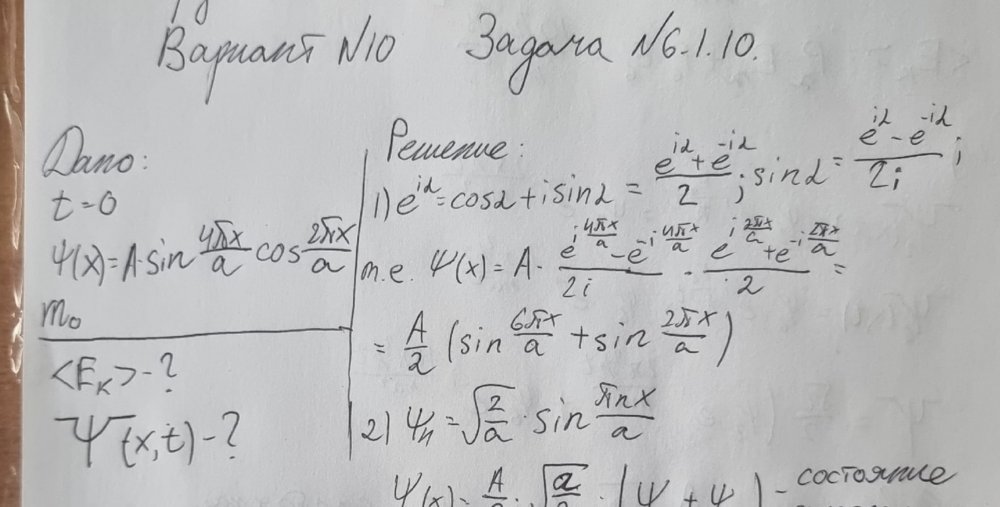 Вариант N10 Задача N6.1.10.
Дано:
t=0
Ψ(x)=A·sin 4πx/a cos 2πx/a
m₀
<Eₖ>-?
Ψ(x,t)-?
Решение:
1) e^{iα}=cosα+isinα = (e^{iα}+e^{-iα})/2 ; sinα = (e^{iα}-e^{-iα})/2i ;
т.е. Ψ(x)=A· (e^{i 4πx/a}-e^{-i 4πx/a})/2i · (e^{i 2πx/a}+e^{-i 2πx/a})/2 =
= A/2 (sin 6πx/a + sin 2πx/a)
2) Ψₙ=√(2/a)·sin πnx/a
состояние